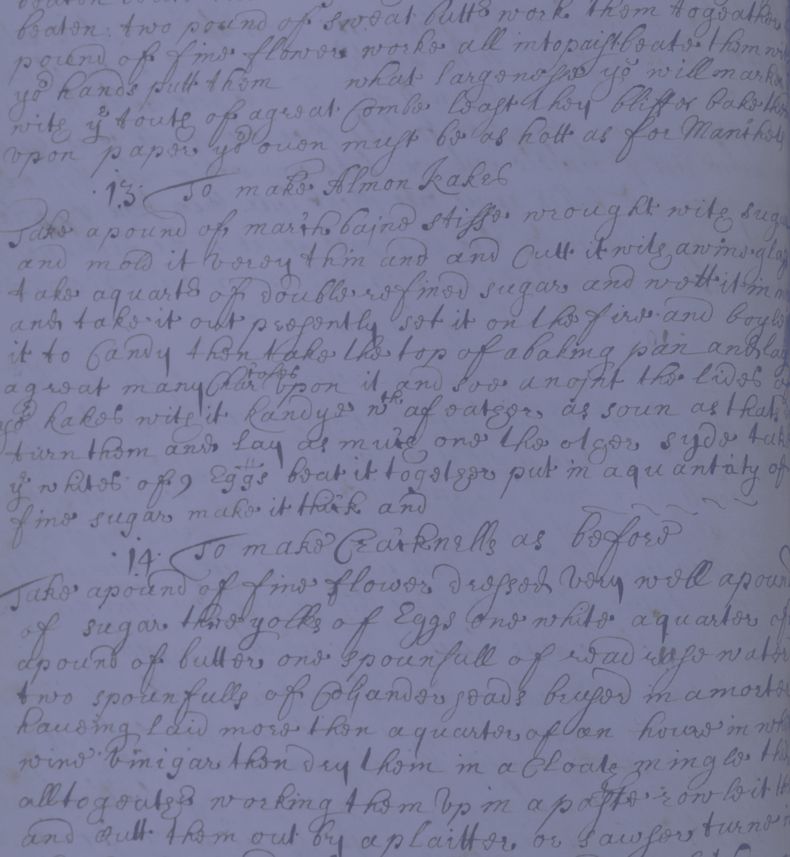 beaten two pound of sweat butter work them togeather
pound of fine flower worke all into paist beate them
yor hands putt them what largenesse yo will mark
with ye touth of a great Combe least they blister bake
upon paper yor oven must be as hott as for Manchet
13 To make Almon kakes
Take a pound of marthbaine stiffe wrought with suga
and mold it verey thin and and Cutt it with a wine gla
take a quarts of double refined sugar and wett it in
and take it out presently set it on the fire and boyle
it to Candy then take the top of a baking pan and lay
a great many Char coles upon it and soe anoint the lides
yor kakes with it kandye wth a feather, as soun as that
turn them and lay as much one the other syde take
ye whites of 9 Eggs beat it together put in a quantaty of
fine sugar make it thick and
14 To make Cracknells as before
Take a pound of fine flower dressed very well a poun
of sugar thre yolks of Eggs one white a quarter of
a pound of butter one spounfull of read rose water
two spounfulls of Coliander seads brused in a morter
haueing laid more then a quarter of an houre in
wine vinigar then dry them in a Cloath mingle
all togeather working them up in a paste rowle it
and Cutt them out by a plaitter or sawser turne